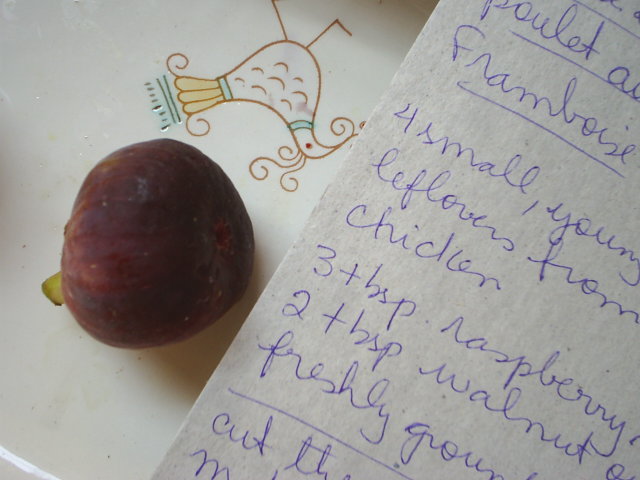 poulet au
Framboise
4 small, young
leftovers from
chicken
3 tbsp. raspberry
2 tbsp walnut
freshly groun
cut the